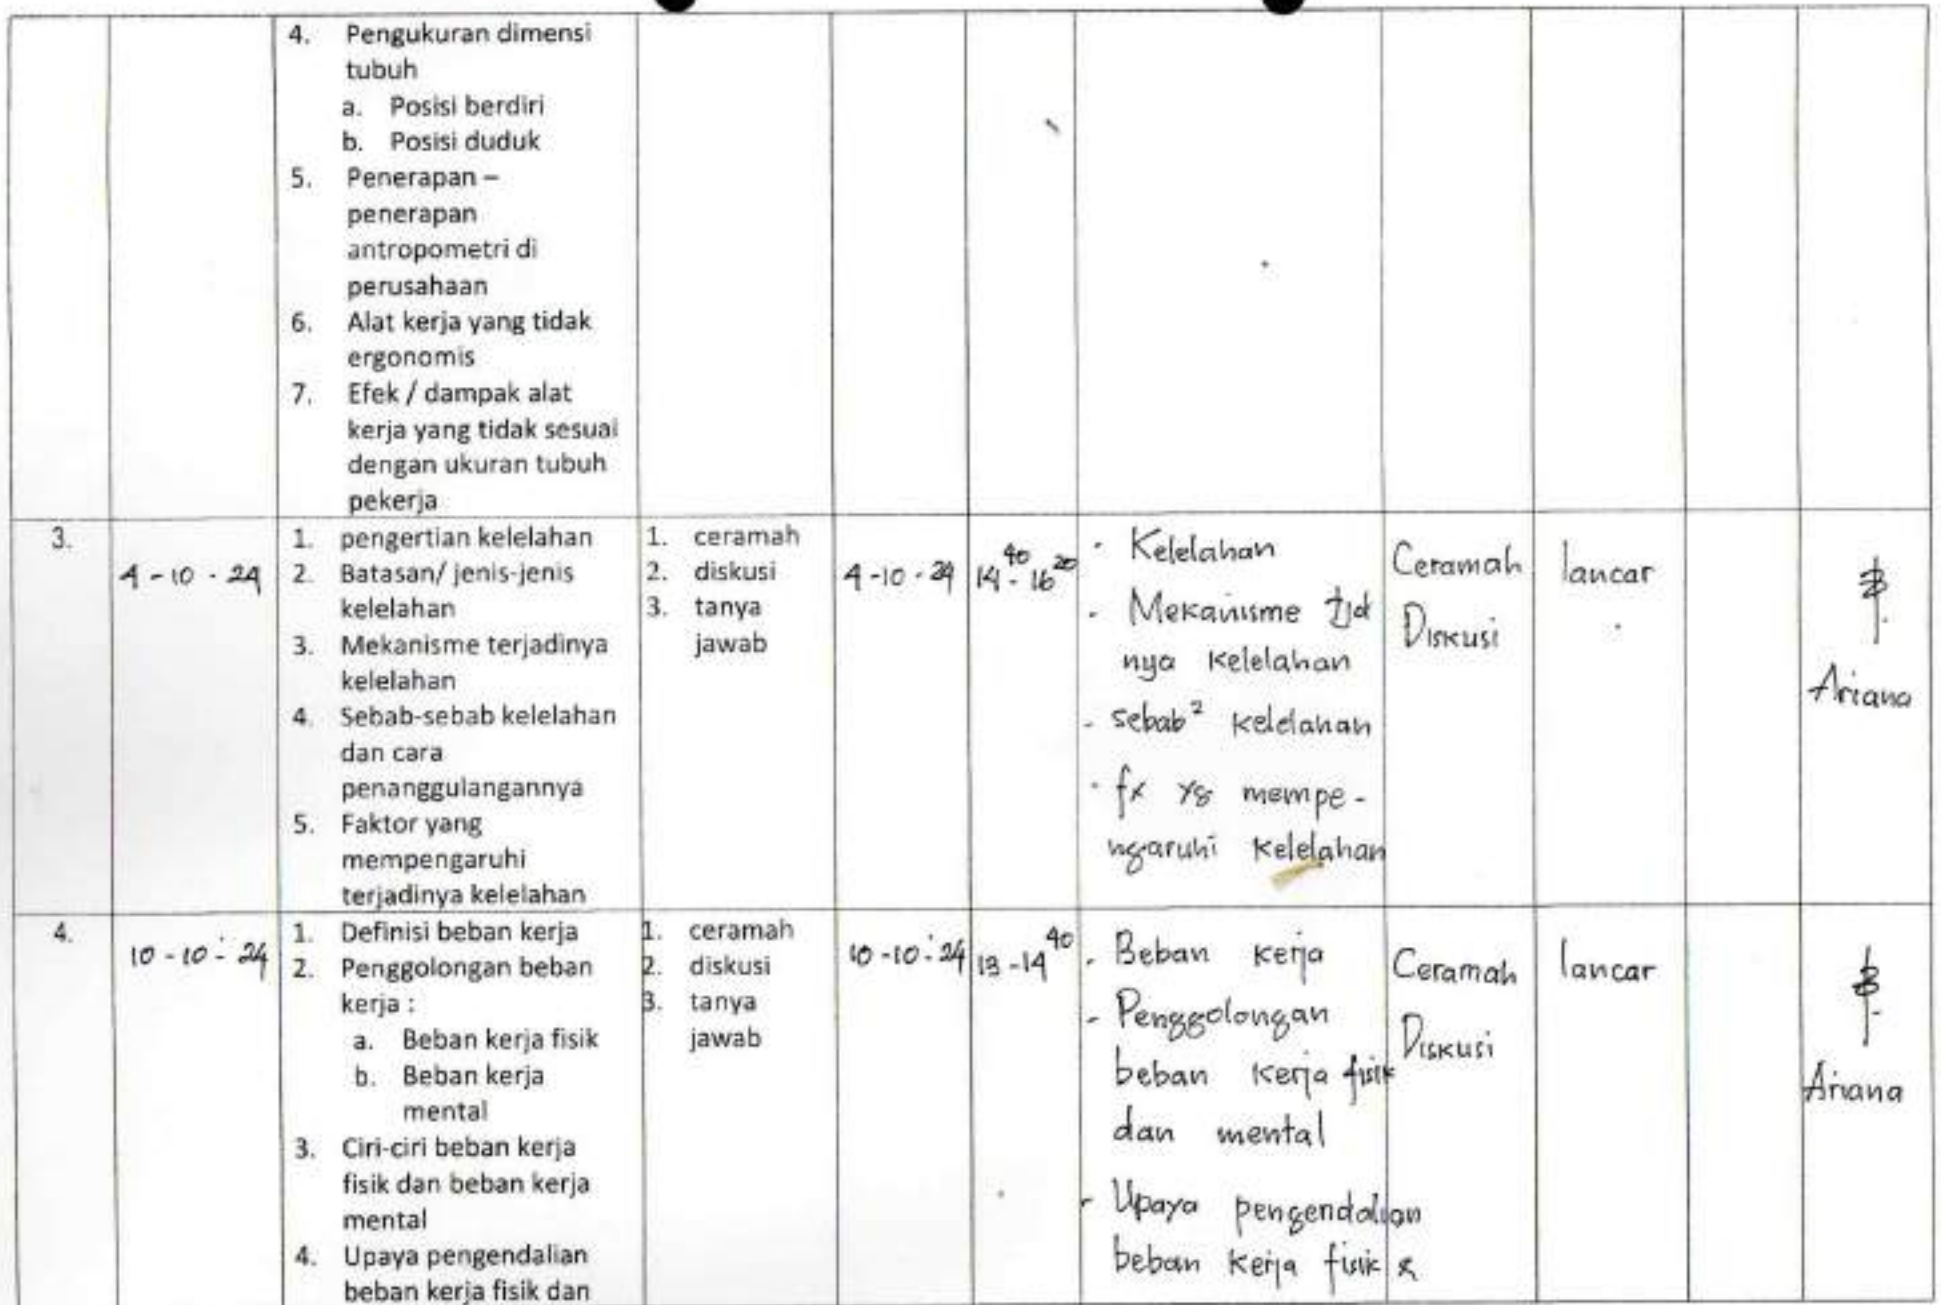 4. Pengukuran dimensi
tubuh
a. Posisi berdiri
b. Posisi duduk
5. Penerapan –
penerapan
antropometri di
perusahaan
6. Alat kerja yang tidak
ergonomis
7. Efek / dampak alat
kerja yang tidak sesuai
dengan ukuran tubuh
pekerja
3.
4 - 10 - 24
1. pengertian kelelahan
2. Batasan/ jenis-jenis
kelelahan
3. Mekanisme terjadinya
kelelahan
4. Sebab-sebab kelelahan
dan cara
penanggulangannya
5. Faktor yang
mempengaruhi
terjadinya kelelahan
1. ceramah
2. diskusi
3. tanya
jawab
4 - 10 - 24
14⁴⁰ - 16²⁰
- Kelelahan
- Mekanisme tjd
nya kelelahan
- sebab² kelelahan
- fx yg mempe -
ngaruhi kelelahan
Ceramah
Diskusi
lancar
Ariana
4.
10 - 10 - 24
1. Definisi beban kerja
2. Penggolongan beban
kerja :
a. Beban kerja fisik
b. Beban kerja
mental
3. Ciri-ciri beban kerja
fisik dan beban kerja
mental
4. Upaya pengendalian
beban kerja fisik dan
1. ceramah
2. diskusi
3. tanya
jawab
10 - 10 - 24
13 - 14⁴⁰
- Beban kerja
- Penggolongan
beban kerja fisik
dan mental
- Upaya pengendalian
beban kerja fisik &
Ceramah
Diskusi
lancar
Ariana